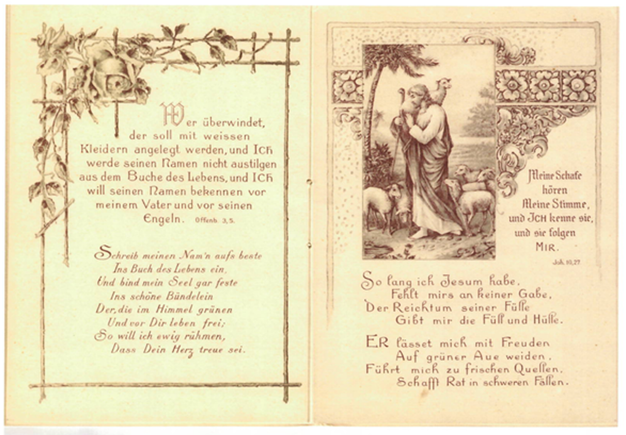 Wer überwindet,
der soll mit weissen
Kleidern angelegt werden, und ICH
werde seinen Namen nicht austilgen
aus dem Buche des Lebens, und ICH
will seinen Namen bekennen vor
meinem Vater und vor seinen
Engeln. Offenb. 3, 5.
Schreib meinen Nam'n aufs beste
Ins Buch des Lebens ein,
Und bind mein Seel gar feste
Ins schöne Bündelein
Der, die im Himmel grünen
Und vor Dir leben frei;
So will ich ewig rühmen,
Dass Dein Herz treue sei.
Meine Schafe
hören
Meine Stimme,
und ICH kenne sie,
und sie folgen
MIR.
Joh. 10, 27.
So lang ich Jesum habe,
Fehlt mirs an keiner Gabe,
Der Reichtum seiner Fülle
Gibt mir die Füll und Hülle.
ER lässet mich mit Freuden
Auf grüner Aue weiden,
Führt mich zu frischen Quellen,
Schafft Rat in schweren Fällen.